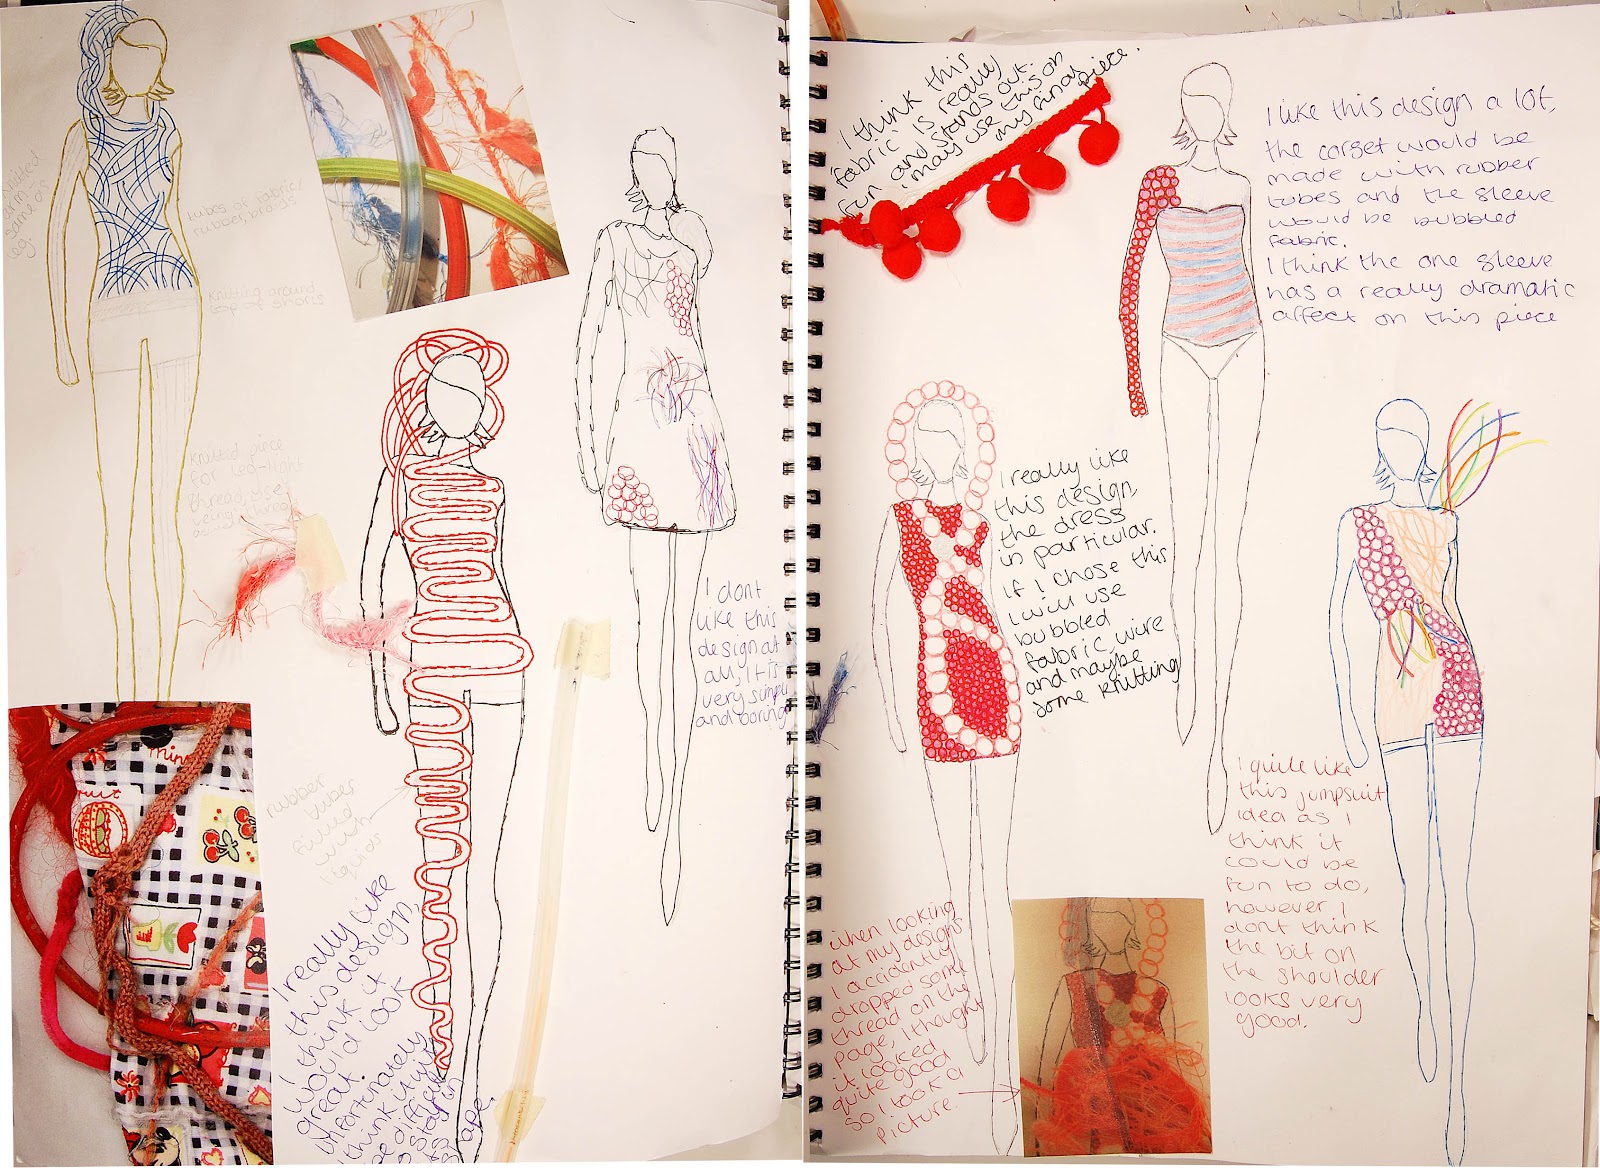 knitted
arm
same as
leg
tubes of fabric/
rubber, braids
knitting around
top of shorts
knitted piece
for led-light
thread, use
rubber
tuber
filled
with
liquids
I really like
this design,
I think it
would look
great.
Unfortunately
I think it will
be difficult
to stay in
its shape.
I dont
like this
design at
all, it is
very simple
and boring
mini
fruit
I think this
fabric is really
fun and stands out.
I may use this on
my final piece.
I like this design a lot,
the corset would be
made with rubber
tubes and the sleeve
would be bubbled
fabric.
I think the one sleeve
has a really dramatic
affect on this piece
I really like
this design,
the dress
in particular.
if I chose this
I will use
bubbled
fabric, wire
and maybe
some knitting
I quite like
this jumpsuit
idea as I
think it
could be
fun to do,
however I
dont think
the bit on
the shoulder
looks very
good.
when looking
at my designs
I accidently
dropped some
thread on the
page, I thought
it looked
quite good
so I took a
picture.